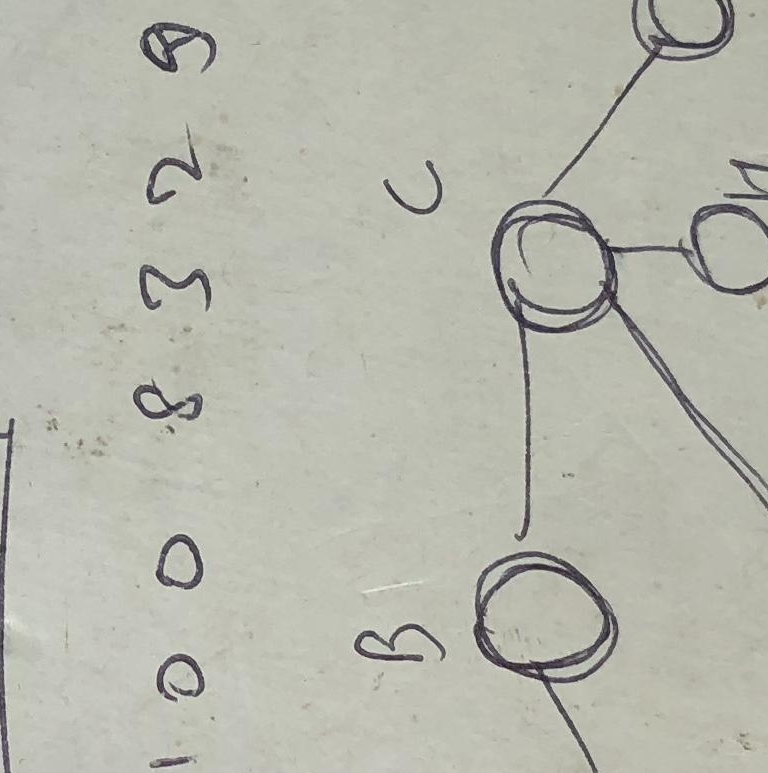 1 0 0 8 3 2 9
B C